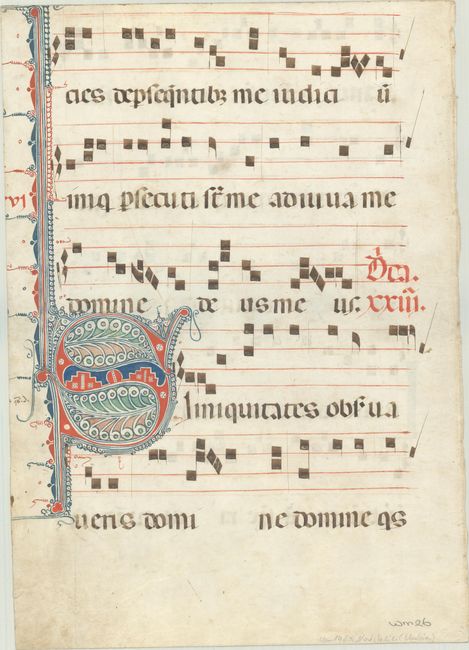 cies de psequentibz me iudici ũ
VI
iniq psecuti st me adiuua me
domine de us me us. Dca.
xxiii.
Si iniquitates obserua
ueris domi ne domine qs
wm26